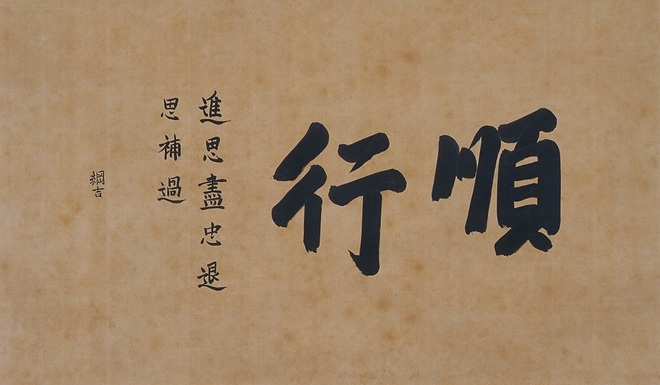 順行
進思盡忠退
思補過
綱吉